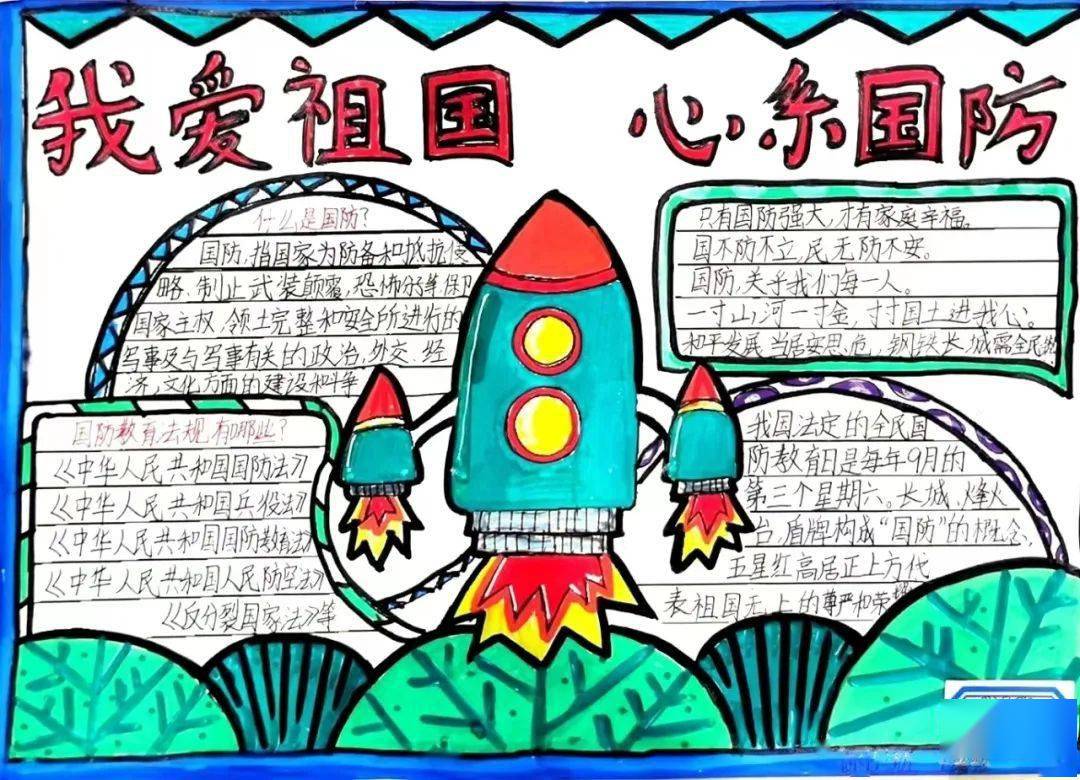 我爱祖国 心系国防
什么是国防?
国防,指国家为防备和抵抗侵
略、制止武装颠覆、恐怖分等保卫
国家主权,领土完整和安全所进行的
军事及与军事有关的政治,外交、经
济,文化方面的建设和斗争
国防教育法规有哪些?
《中华人民共和国国防法》
《中华人民共和国兵役法》
《中华人民共和国国防教育法》
《中华人民共和国人民防空法》
《反分裂国家法》等
只有国防强大,才有家庭幸福。
国不防不立,民无防不安。
国防,关乎我们每一人。
一寸山河一寸金,寸寸国土进我心。
和平发展,当居安思危,钢铁长城需全民
我国法定的全民国
防教育日是每年9月的
第三个星期六。长城,烽火
台,盾牌构成“国防”的概念,
五星红高居正上方代
表祖国无上的尊严和荣